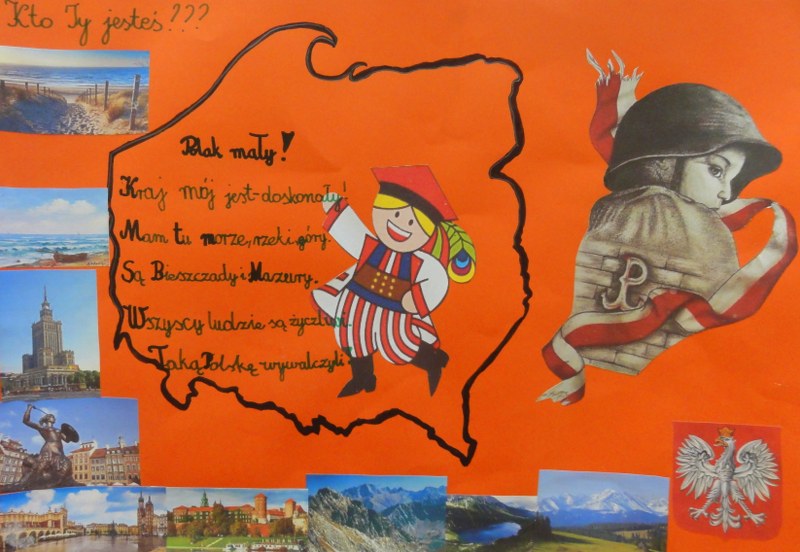 Kto Ty jesteś???
Polak mały!
Kraj mój jest-doskonały!
Mam tu morze, rzeki, góry.
Są Bieszczady i Mazury.
Wszyscy ludzie są życzliwi.
Taką Polskę-wywalczyli